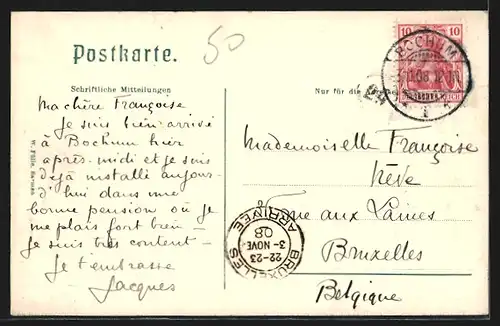 Postkarte.
50
Schriftliche Mitteilungen
Nur für die
Ma chère Françoise
Je suis bien arrivé
à Bochum hier
après-midi et je suis
déjà installé aujour-
d'hui dans une
bonne pension où je
me plais fort bien -
je suis très content -
Je t'embrasse -
Jacques
Mademoiselle Françoise
Hève
rue aux Laines
Bruxelles
Belgique
10 10
BOCHUM
DEUTSCHES REICH
BRUXELLES
22-23
3- NOVE
08
ARRIVEE